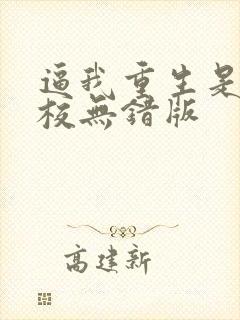 逼我重生是
校無錯版
高建新